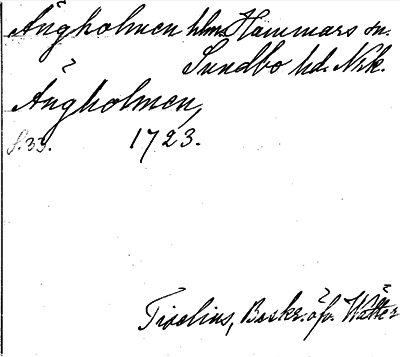 Ängholmen hlm Hammars sn.
Sundbo hd. Nrk.
Ängholmen,
s. 33. 1723.
Tiselius, Beskr. öfv. Wätter